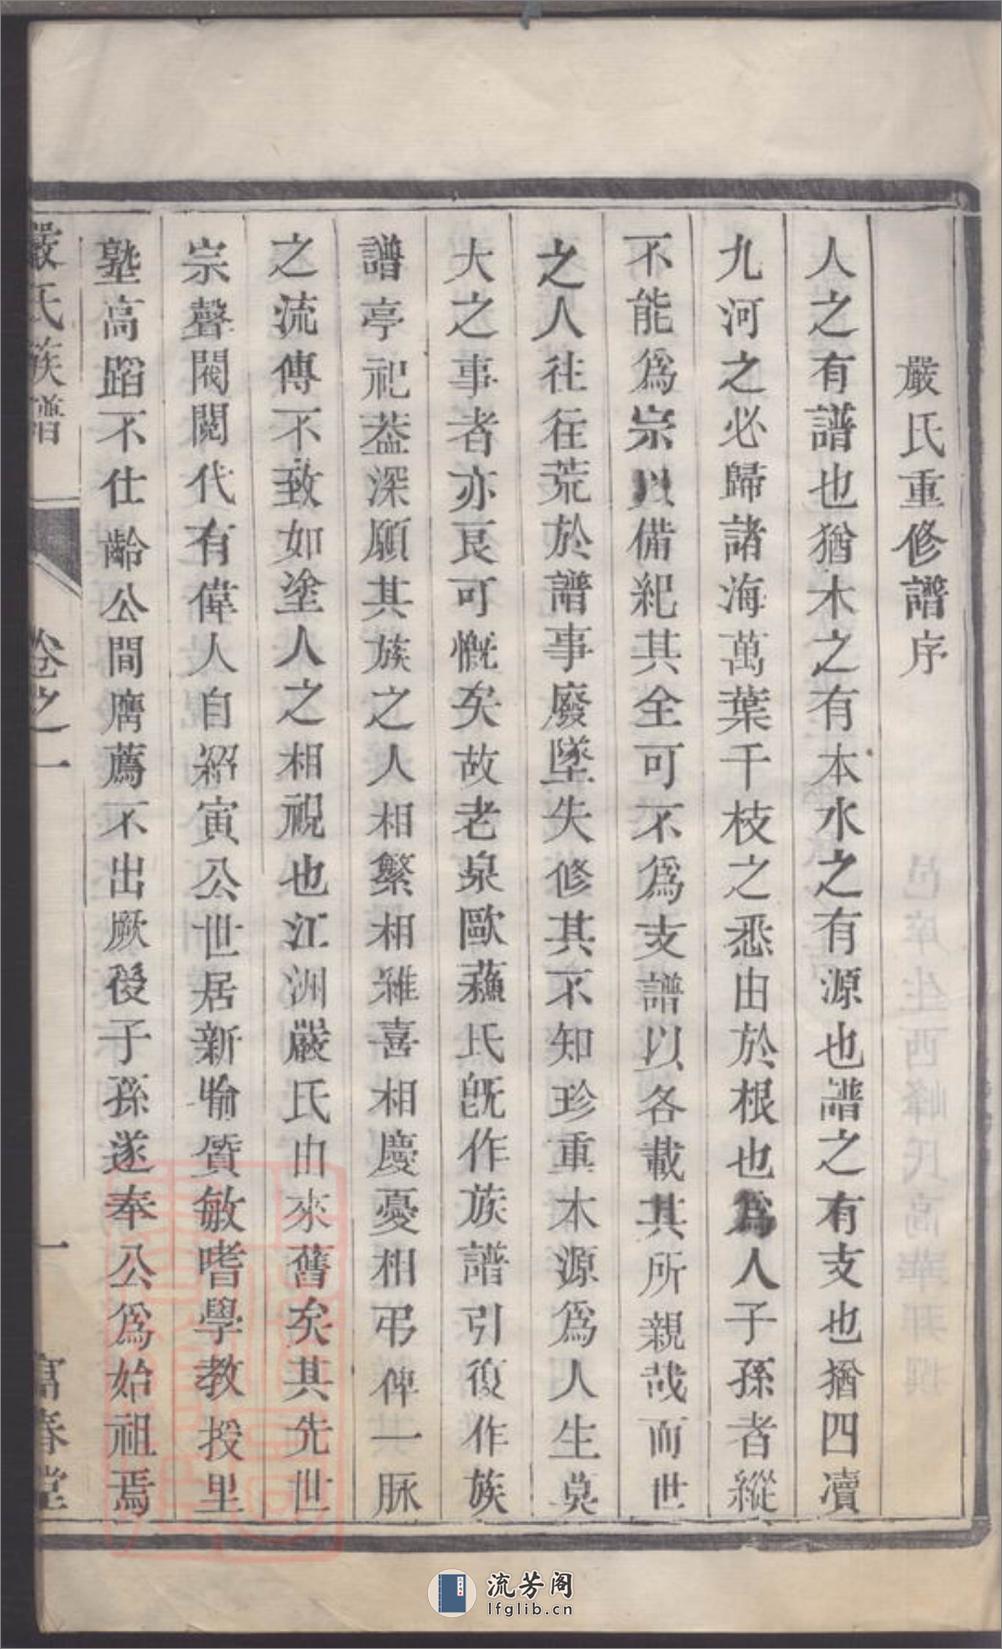 嚴氏重修譜序
人之有譜也猶木之有本水之有源也譜之有支也猶四瀆
九河之必歸諸海萬葉千枝之悉由於根也爲人子孫者縱
不能爲宗以備紀其全可不爲支譜以各載其所親哉而世
之人往往荒於譜事廢墜失修其不知珍重木源爲人生莫
大之事者亦良可慨矣故老泉歐蘇氏旣作族譜引復作族
譜亭祀葢深願其族之人相繫相維喜相慶憂相弔俾一脉
之流傳不致如塗人之相視也江洲嚴氏由來舊矣其先世
宗聲閥閱代有偉人自紹寅公世居新喻質敏嗜學教授里
塾高蹈不仕齡公間膺薦不出厥後子孫遂奉公爲始祖焉
嚴氏族譜 卷之一 一 富春堂
流芳阁
lfglib.cn